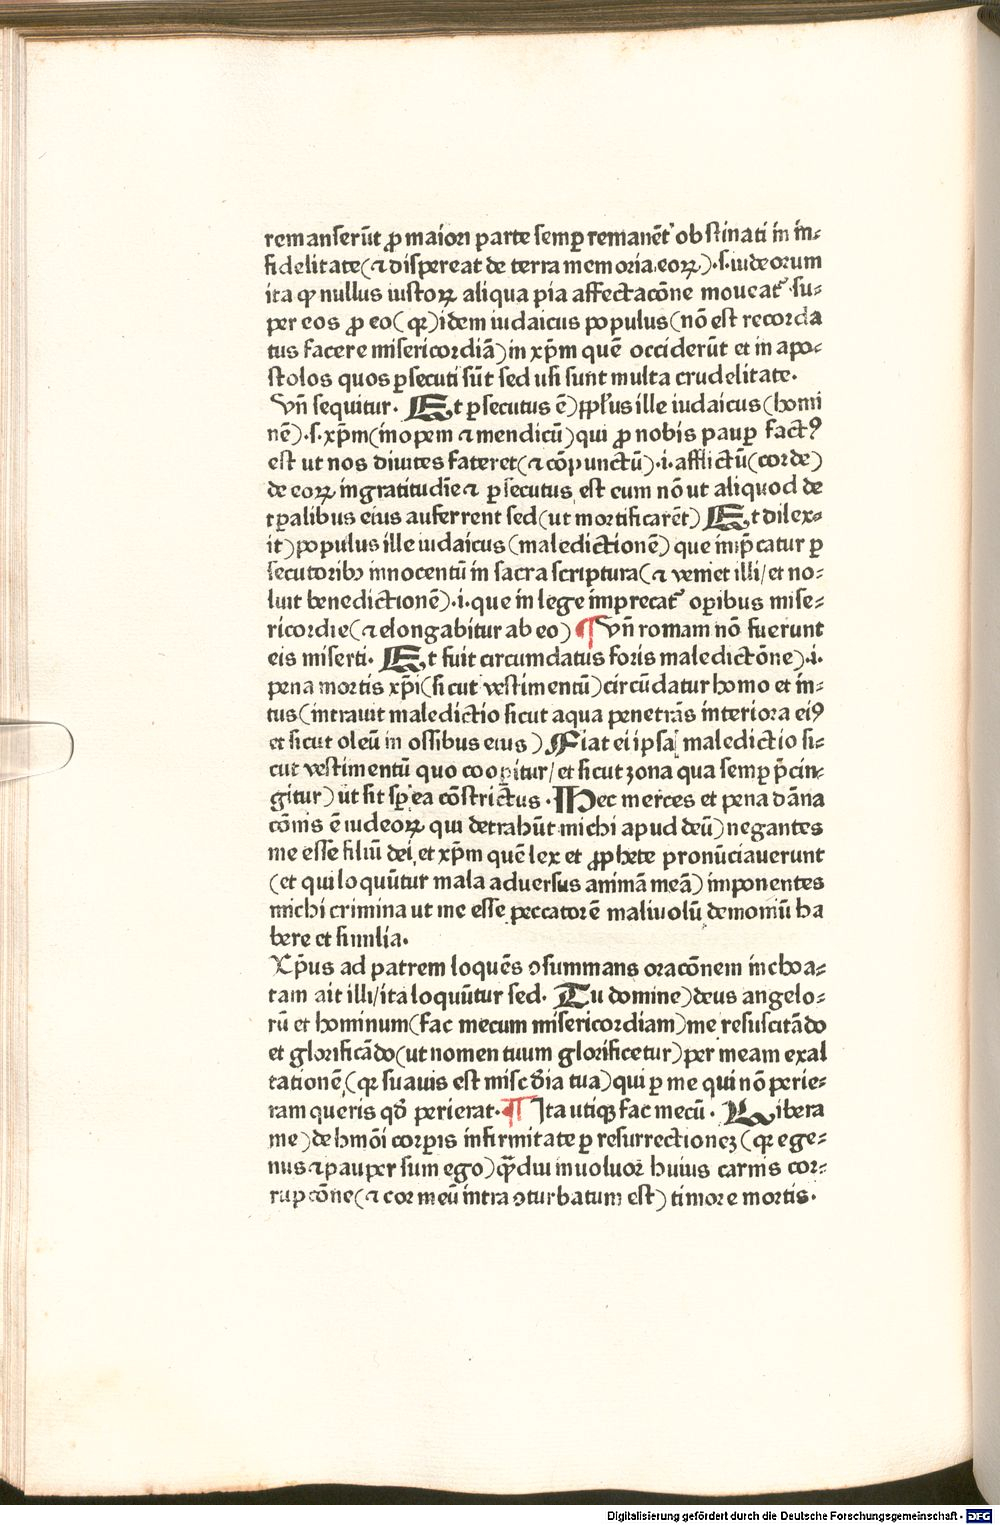 remanserūt ꝓ maiori parte semꝑ remanēt᷑ obstinati in in⸗
fidelitate(⁊ dispereat de terra memoria eoꝝ).s. iudeorum
ita ꝙ nullus iustoꝝ aliqua pia affectacōne moueat᷑ su⸗
per eos ꝓ eo(qꝛ)idem iudaicus populus(nō est recorda
tus facere misericordiā)in xp̄m quē occiderūt et in apo⸗
stolos quos ꝑsecuti sūt sed usi sunt multa crudelitate.
Vn̄ sequitur. Et ꝑsecutus ē)pp̄lus ille iudaicus(homi
nē).s. xp̄m(inopem ⁊ mendicū)qui ꝓ nobis pauꝑ factꝰ
est ut nos diuites faceret(⁊ cōpunctū).i. afflictū(corde)
de eoꝝ ingratitudīe ⁊ ꝑsecutus est eum nō ut aliquod de
tꝑalibus eius auferrent sed(ut mortificarēt) Et dilex⸗
it)populus ille iudaicus(maledictionē) que imp̄catur ꝑ
secutoribꝫ innocentū in sacra scriptura(⁊ veniet illi/et no⸗
luit benedictionē).i. que in lege imprecat᷑ oꝑibus mise⸗
ricordie(⁊ elongabitur ab eo) ¶ Vn̄ romam nō fuerunt
eis miserti. Et fuit circumdatus foris maledictōne).i.
pena mortis xp̄i(sicut vestimentū)circūdatur homo et in⸗
tus(intrauit maledictio sicut aqua penetrās interiora eiꝰ
et sicut oleū in ossibus eius) Fiat ei ipsa maledictio si⸗
cut vestimentū quo cooꝑitur/et sicut zona qua semꝑ p̄cin⸗
gitur)ut sit sꝑ ea cōstrictus. Hec merces et pena dāna
cōnis ē iudeoꝝ qui detrahūt michi apud deū)negantes
me esse filiū dei et xp̄m quē lex et ꝓphete pronūciauerunt
(et qui loquūtur mala aduersus animā meā)imponentes
michi crimina ut me esse peccatorē maliuolū demoniū ha
bere et similia.
Xp̄us ad patrem loquēs ꝯsummans oracōnem inchoa⸗
tam ait illi/ita loquūtur sed. Tu domine)deus angelo⸗
rū et hominum(fac mecum misericordiam)me resuscitādo
et glorificādo(ut nomen tuum glorificetur)per meam exal
tationē(qꝛ suauis est misc̄dia tua)qui ꝑ me qui nō perie⸗
ram queris qd̄ perierat. ¶ Ita utiqꝫ fac mecū. Libera
me)de hmōi corꝑis infirmitate ꝑ resurrectioneꝫ(qꝛ ege⸗
nus ⁊ pauper sum ego)qᷓdiu inuoluor huius carnis cor⸗
rupcōne(⁊ cor meū intra ꝯturbatum est)timore mortis.
Digitalisierung gefördert durch die Deutsche Forschungsgemeinschaft - DFG